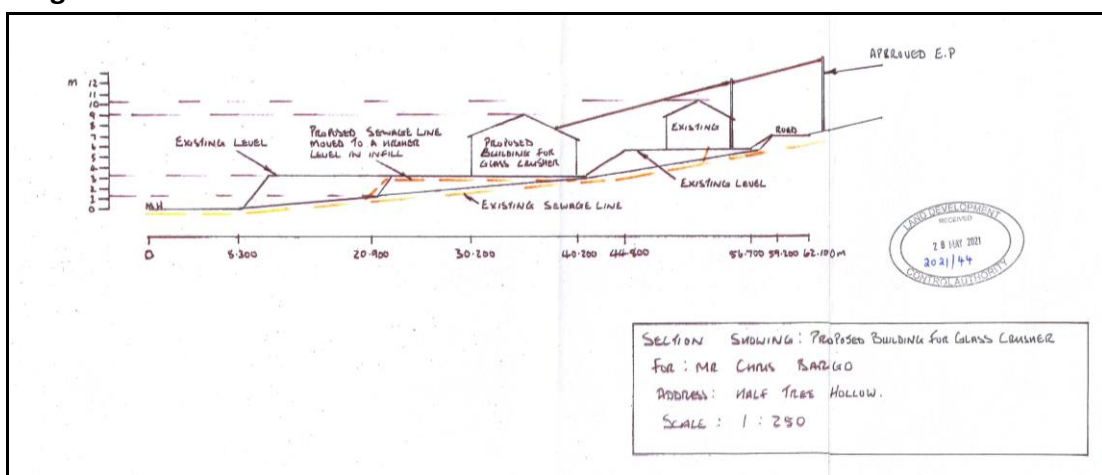 APPROVED E.P
m
12
11
10
9
8
7
6
5
4
3
2
1
0
EXISTING LEVEL
PROPOSED SEWAGE LINE
MOVED TO A HIGHER
LEVEL IN INFILL
PROPOSED
BUILDING FOR
GLASS CRUSHER
EXISTING
ROAD
EXISTING LEVEL
M.H
EXISTING SEWAGE LINE
0
20.900
30.200
40.200
44.800
56.700
59.200
62.100m
LAND DEVELOPMENT
RECEIVED
28 MAY 2021
2021/44
CONTROL AUTHORITY
SECTION SHOWING: PROPOSED BUILDING FOR GLASS CRUSHER
FOR: MR CHRIS BARGO
ADDRESS: HALF TREE HOLLOW.
SCALE: 1:250